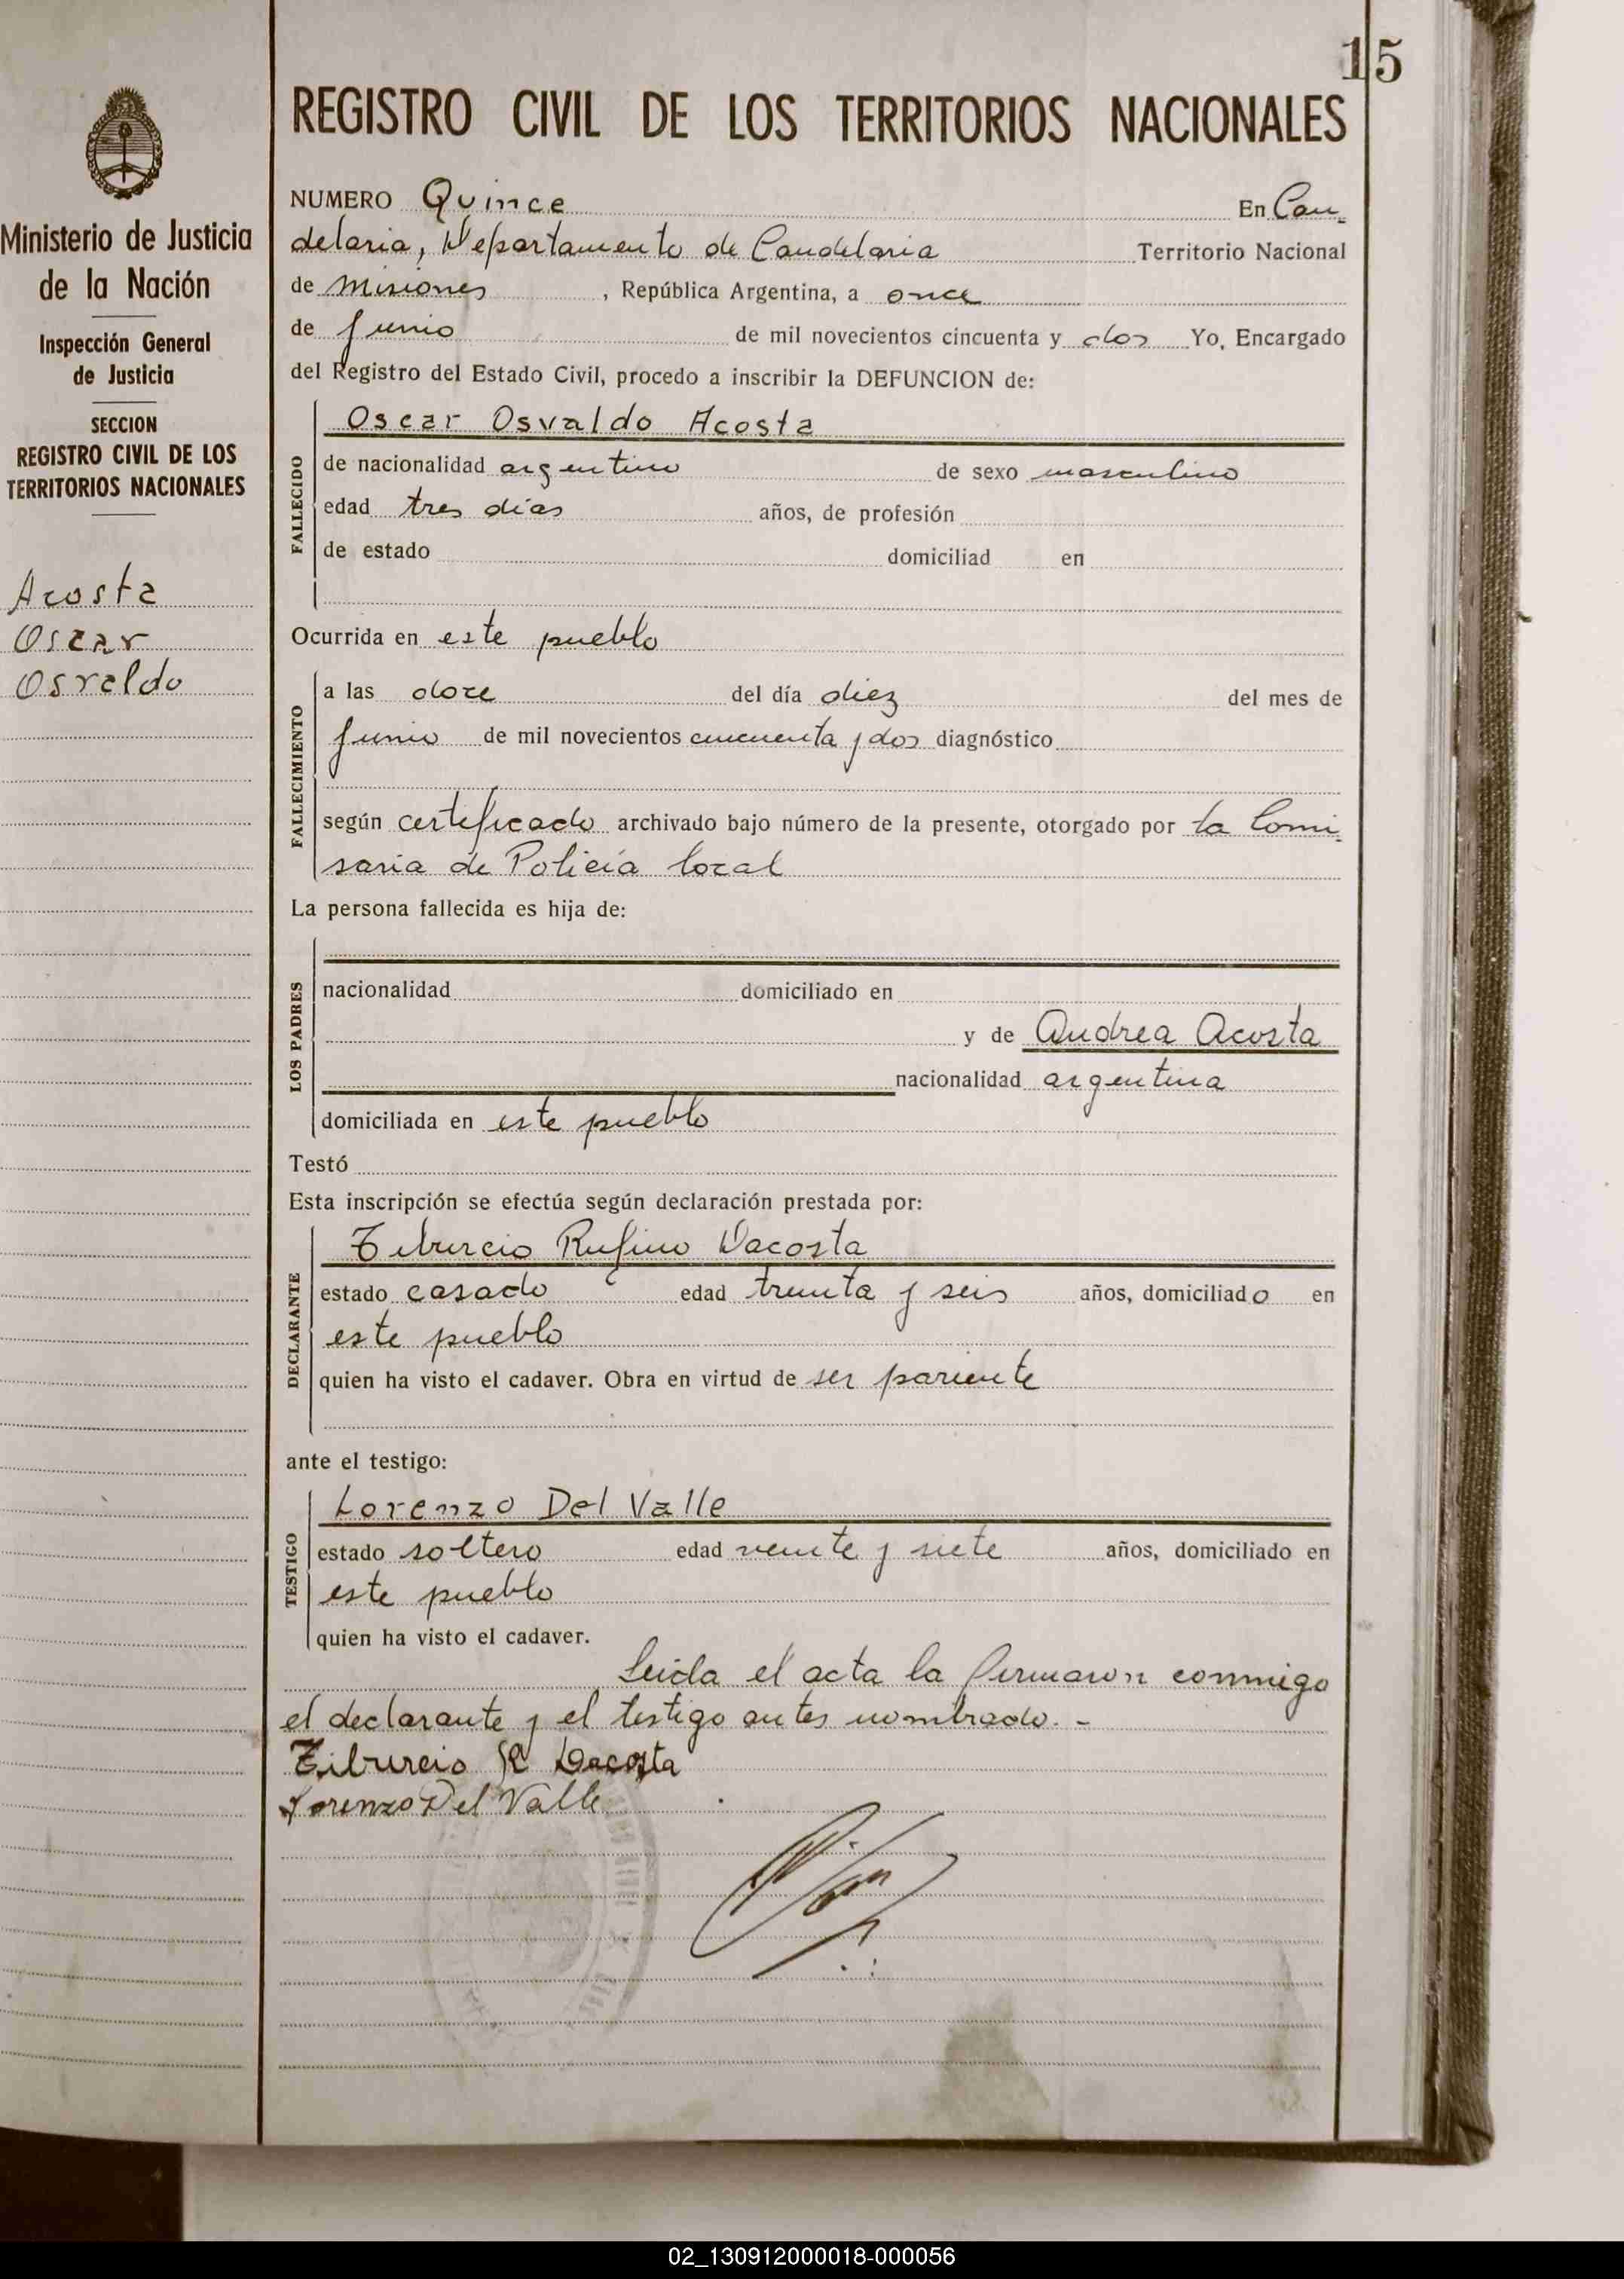 15
REGISTRO CIVIL DE LOS TERRITORIOS NACIONALES
Ministerio de Justicia
de la Nación
Inspección General
de Justicia
SECCION
REGISTRO CIVIL DE LOS
TERRITORIOS NACIONALES
Acosta
Oscar
Osvaldo
NUMERO Quince En Can-
delaria, Departamento de Candelaria Territorio Nacional
de Misiones, República Argentina, a once
de Junio de mil novecientos cincuenta y dos Yo, Encargado
del Registro del Estado Civil, procedo a inscribir la DEFUNCION de:
FALLECIDO
Oscar Osvaldo Acosta
de nacionalidad argentino de sexo masculino
edad tres días años, de profesión
de estado domiciliad en
Ocurrida en este pueblo
FALLECIMIENTO
a las doce del día diez del mes de
Junio de mil novecientos cincuenta y dos diagnóstico
según certificado archivado bajo número de la presente, otorgado por la Comi-
saria de Policía local
La persona fallecida es hija de:
LOS PADRES
nacionalidad domiciliado en
y de Andrea Acosta
nacionalidad argentina
domiciliada en este pueblo
Testó
Esta inscripción se efectúa según declaración prestada por:
DECLARANTE
Tiburcio Rufino Dacosta
estado casado edad treinta y seis años, domiciliado en
este pueblo
quien ha visto el cadaver. Obra en virtud de ser pariente
ante el testigo:
TESTIGO
Lorenzo Del Valle
estado soltero edad veinte y siete años, domiciliado en
este pueblo
quien ha visto el cadaver.
Leida el acta la firmaron conmigo
el declarante y el testigo antes nombrado. -
Tiburcio R Dacosta
Lorenzo Del Valle
02_130912000018-000056